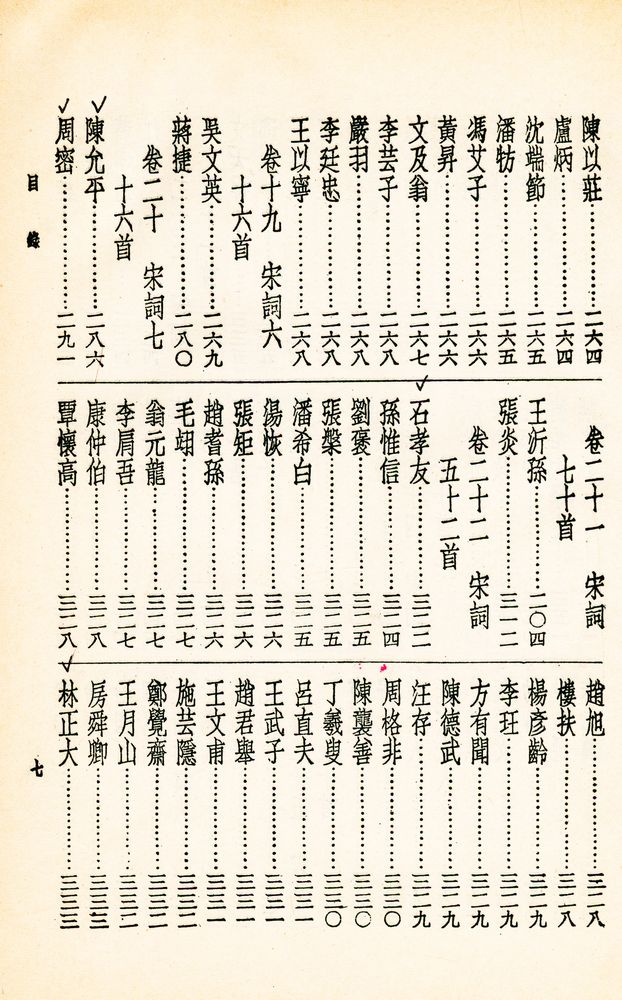 陳以莊………………二六四
盧炳………………二六四
沈端節………………二六五
潘牥………………二六五
馮艾子………………二六六
黃昇………………二六六
文及翁………………二六七
李芸子………………二六八
嚴羽………………二六八
李廷忠………………二六八
王以寧………………二六八
卷十九　宋詞六
十六首
吳文英………………二六九
蔣捷………………二八〇
卷二十　宋詞七
十六首
陳允平………………二八六
周密………………二九一
卷二十一　宋詞
七十首
王沂孫………………二〇四
張炎………………三一二
卷二十二　宋詞
五十二首
石孝友………………三二二
孫惟信………………三二四
劉褒………………三二五
張榘………………三二五
潘希白………………三二五
湯恢………………三二六
張矩………………三二六
趙耆孫………………三二六
毛珝………………三二七
翁元龍………………三二七
李肩吾………………三二七
康仲伯………………三二八
覃懷高………………三二八
趙旭………………三二八
樓扶………………三二八
楊彥齡………………三二九
李玨………………三二九
方有聞………………三二九
陳德武………………三二九
汪存………………三二九
周格非………………三三〇
陳襲善………………三三〇
丁羲叟………………三三〇
呂直夫………………三三一
王武子………………三三一
趙君舉………………三三一
王文甫………………三三一
施芸隱………………三三二
鄭覺齋………………三三二
王月山………………三三二
房舜卿………………三三三
林正大………………三三三
目錄
七